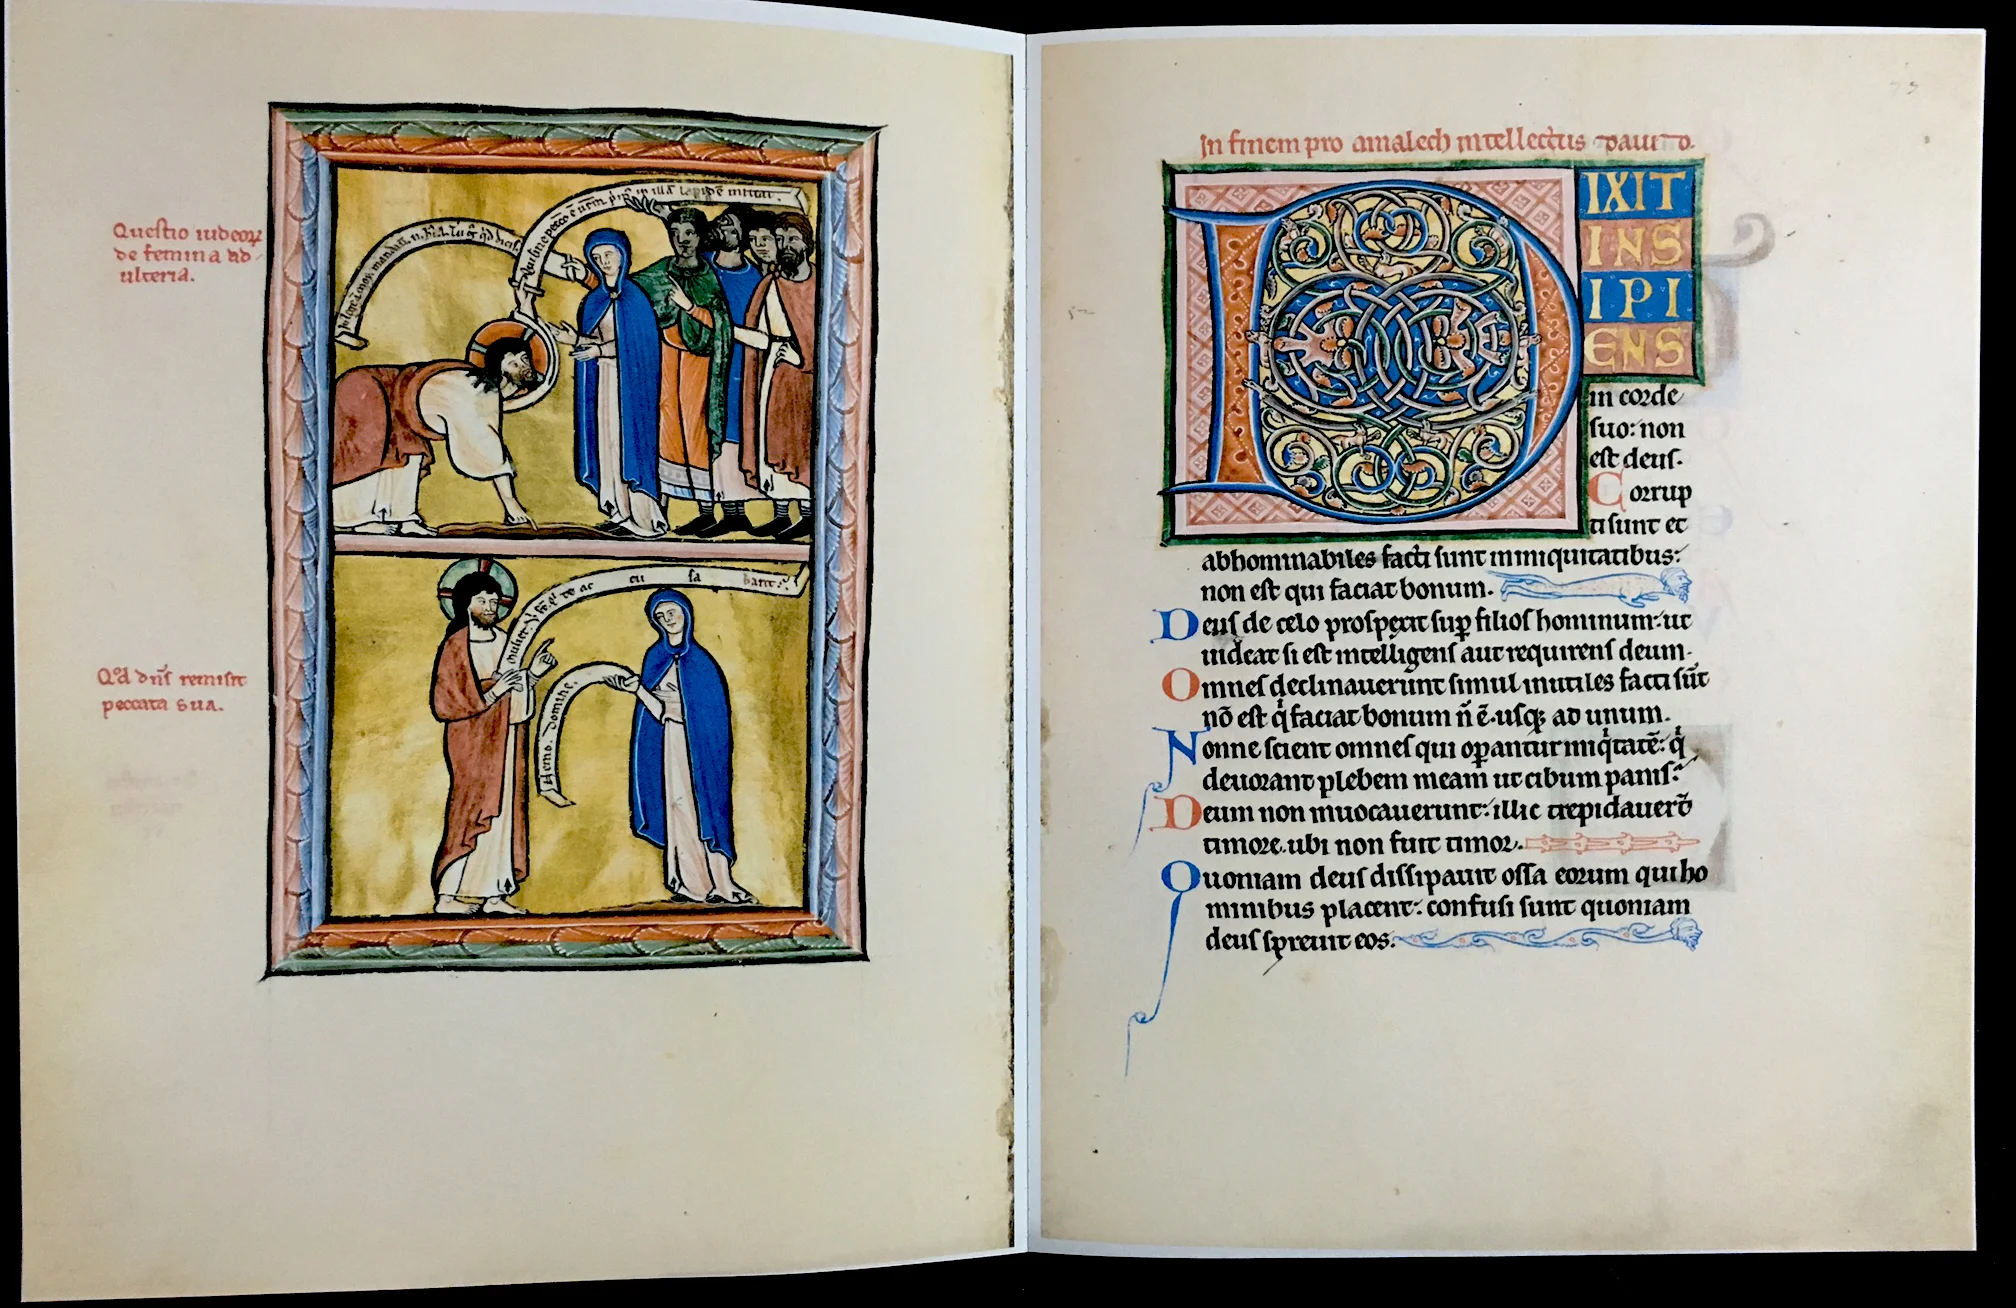 Questio iudeoꝝ
de femina ad
ulteria.
qui sine pecc̄o ē
lapidē mittat.
Qđ dn̄s remisit
peccata sua.
mulier
te ac cu sa bant
Nemo. domine.
In finem pro amalech intellectus dauid.
DIXIT
INS
IPI
ENS
in corde
suo: non
est deus.
Corrup
ti sunt et
abhominabiles facti sunt in iniquitatibus:
non est qui faciat bonum.
Deus de celo prospexit suꝑ filios hominum: ut
uideat si est intelligens aut requirens deum.
Omnes declinauerunt simul inutiles facti sūt
nō est q̇ faciat bonum n̄ ē. usqꝫ ad unum.
Nonne scient omnes qui oꝑantur iniq̇tatē: q̇
deuorant plebem meam ut cibum panis?
Deum non inuocauerunt: illic trepidauer̄t
timore. ubi non fuit timor.
Quoniam deus dissipauit ossa eorum qui ho
minibus placent: confusi sunt quoniam
deus spreuit eos.